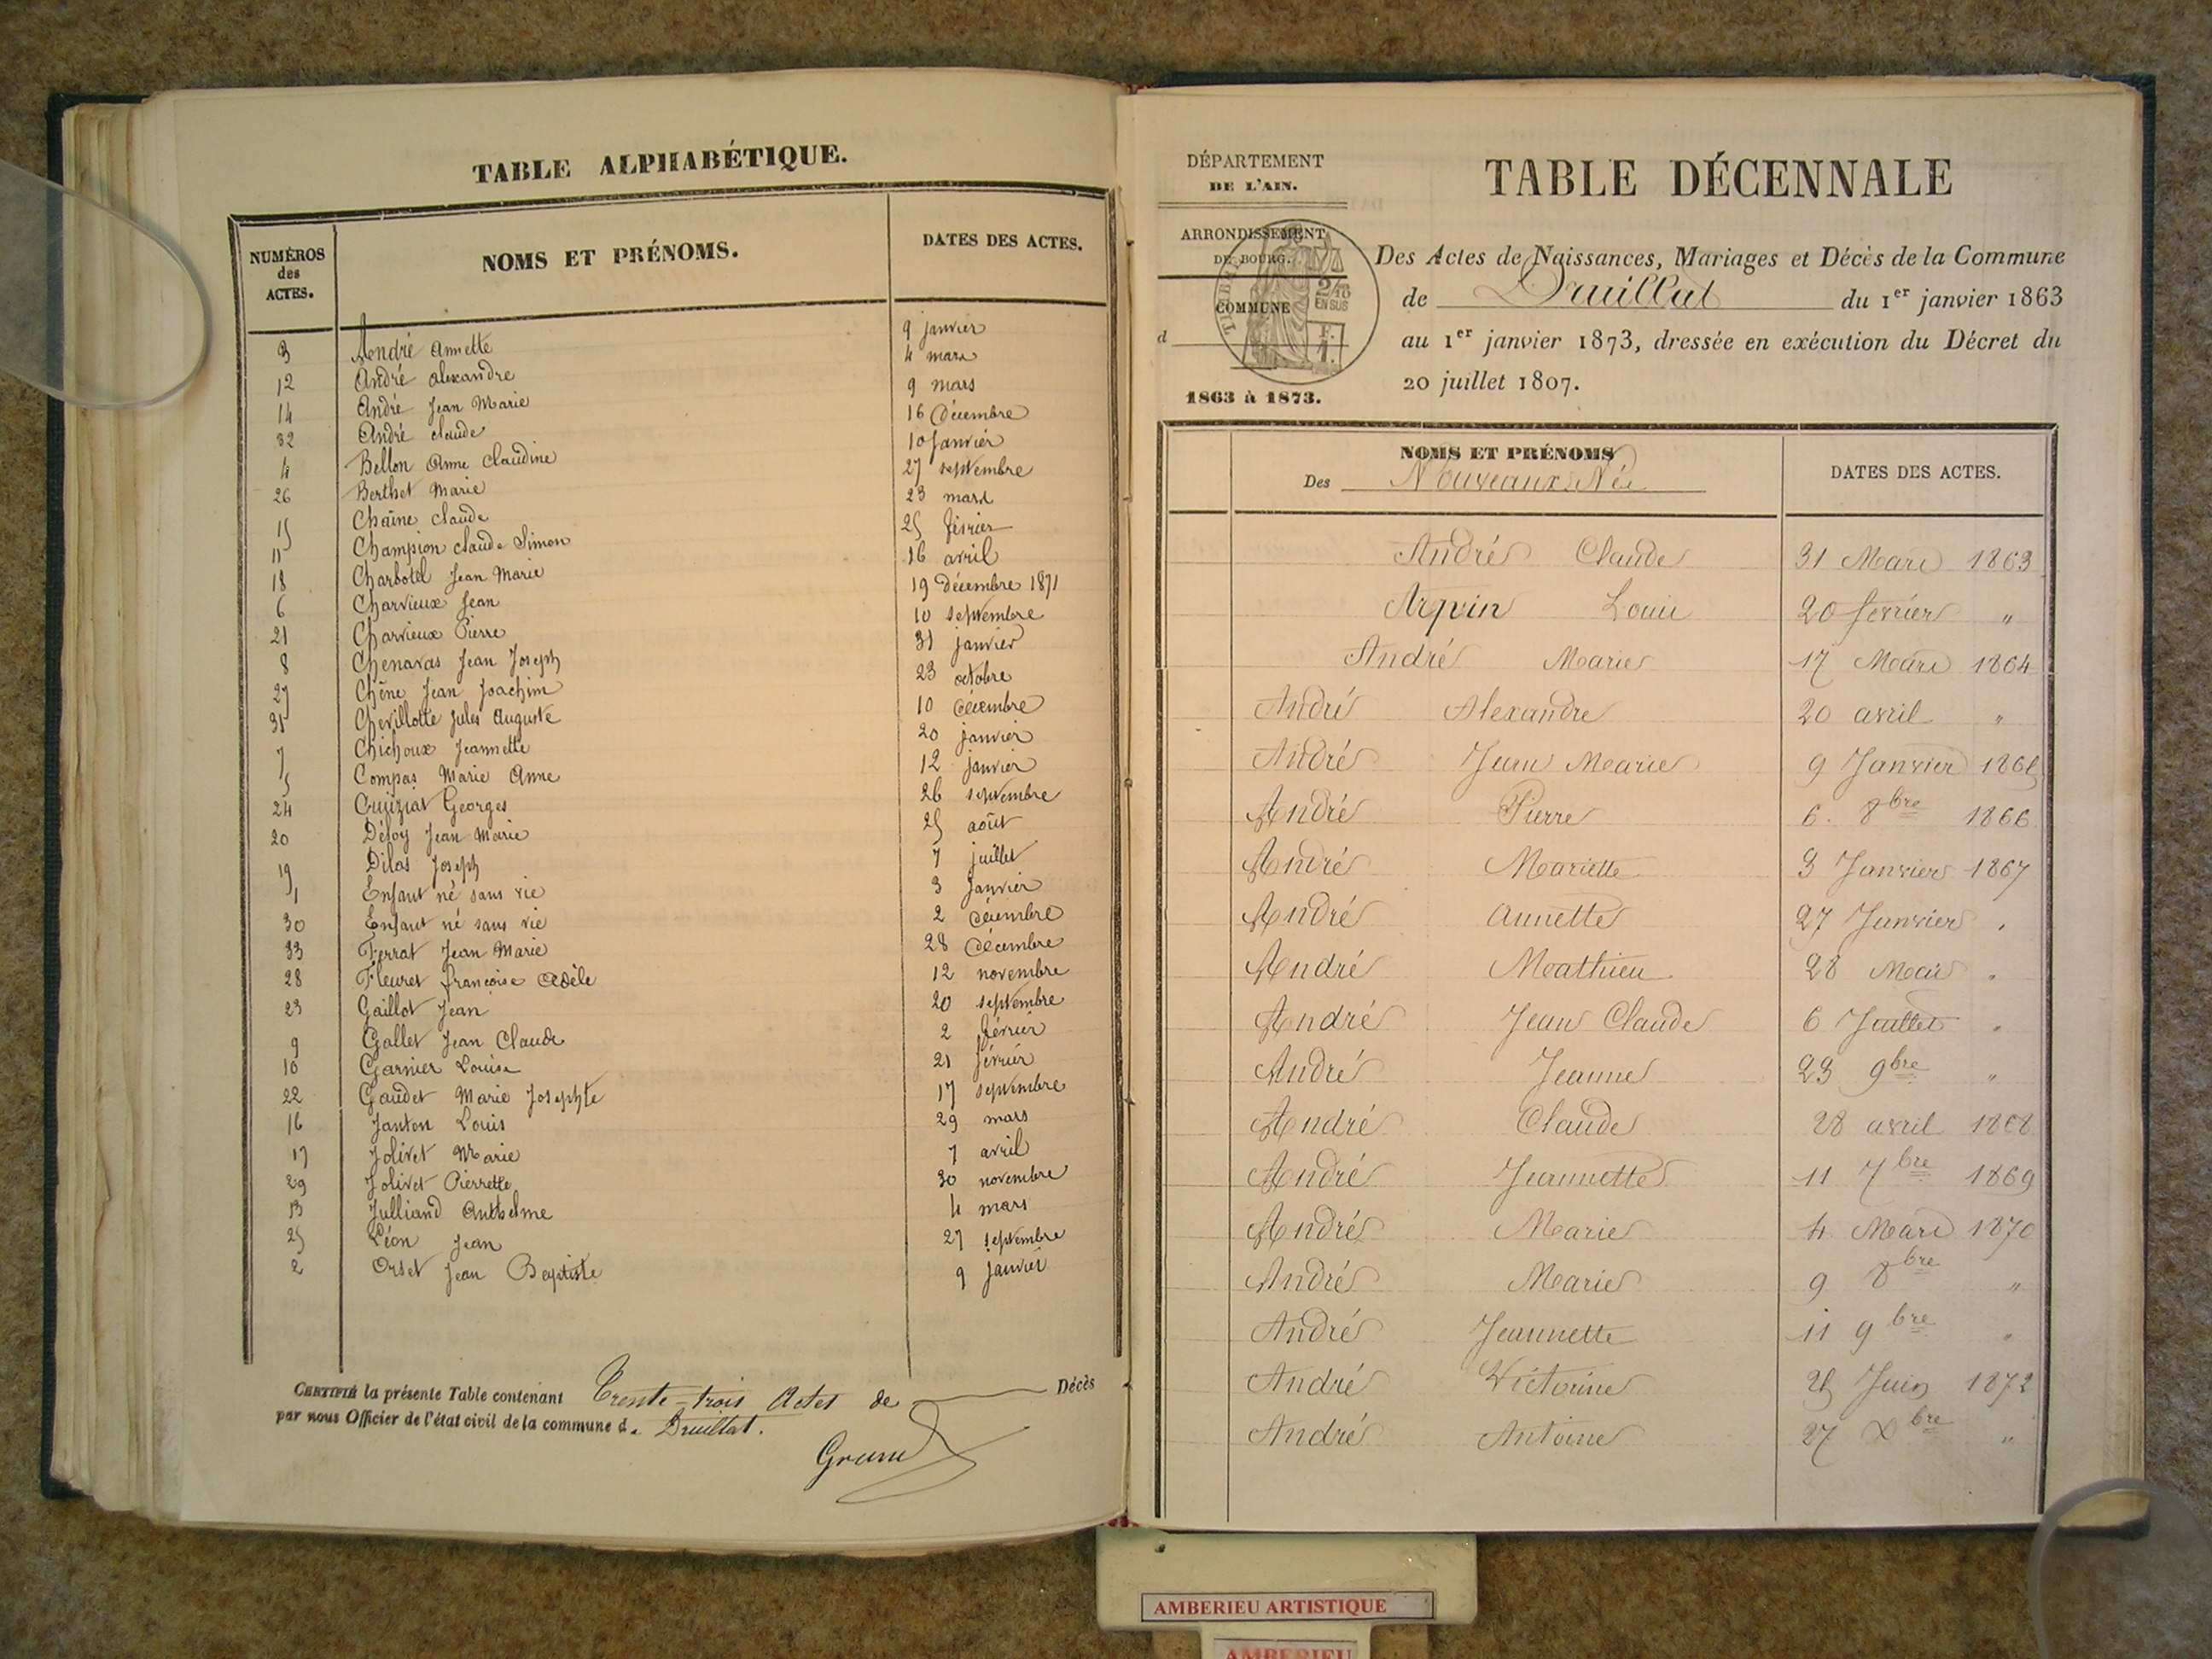 TABLE ALPHABÉTIQUE.
NUMÉROS des ACTES. NOMS ET PRÉNOMS. DATES DES ACTES.
3 André Annette 9 janvier
12 André Alexandre 4 mars
14 André Jean Marie 9 mars
32 André Claude 16 Décembre
4 Bellon Anne Claudine 10 Janvier
26 Berthet Marie 27 septembre
15 Chaîne Claude 23 mars
11 Champion Claude Simon 25 février
18 Charbotel Jean Marie 16 avril
6 Charvieux Jean 19 Décembre 1871
21 Charvieux Pierre 10 septembre
8 Chenavas Jean Joseph 31 janvier
27 Chêne Jean Joachim 23 octobre
31 Chevillotte Jules Auguste 10 Décembre
7 Chichoux Jeannette 20 janvier
5 Compas Marie Anne 12 janvier
24 Cuiziat Georges 26 septembre
20 Jean Marie 25 août
19 Dilas Joseph 7 juillet
1 Enfant né sans vie 3 Janvier
30 Enfant né sans vie 2 Décembre
33 Ferrat Jean Marie 28 Décembre
28 Fleuret françoise Adèle 12 novembre
23 Gaillot Jean 20 septembre
9 Gallet Jean Claude 2 février
10 Garnier Louise 21 février
22 Gaudet Marie Josephte 17 septembre
16 Janton Louis 29 mars
17 Jolivet Marie 7 avril
29 Jolivet Pierrette 30 novembre
13 Julliand Anthelme 4 mars
25 Léon Jean 27 septembre
2 Orset Jean Baptiste 9 Janvier
CERTIFIÉ la présente Table contenant Trente-trois Actes de Décès
par nous Officier de l'état civil de la commune de Druillat.
DÉPARTEMENT
DE L'AIN.
ARRONDISSEMENT
DE BOURG.
COMMUNE
d
1863 à 1873.
2/10
EN SUS
TABLE DÉCENNALE
Des Actes de Naissances, Mariages et Décès de la Commune
de Druillat du 1er janvier 1863
au 1er janvier 1873, dressée en exécution du Décret du
20 juillet 1807.
NOMS ET PRÉNOMS
Des Nouveaux Nés
DATES DES ACTES.
André Claude 31 Mars 1863
Arpin Louis 20 février "
André Marie 17 Mars 1864
André Alexandre 20 avril "
André Jean Marie 9 Janvier
André Pierre 6 8bre 1866
André Mariette 3 Janvier 1867
André Annette 27 Janvier "
André Mathieu 28 "
André Jean Claude 6 Juillet "
André Jeanne 23 9bre "
André Claude 28 avril 1868
André Jeannette 11 7bre 1869
André Marie 4 Mars 1870
André Marie 9 8bre "
André Jeannette 11 9bre "
André Victorine 25 Juin 1872
André Antoine 27 Xbre "
AMBERIEU ARTISTIQUE
AMBERIEU